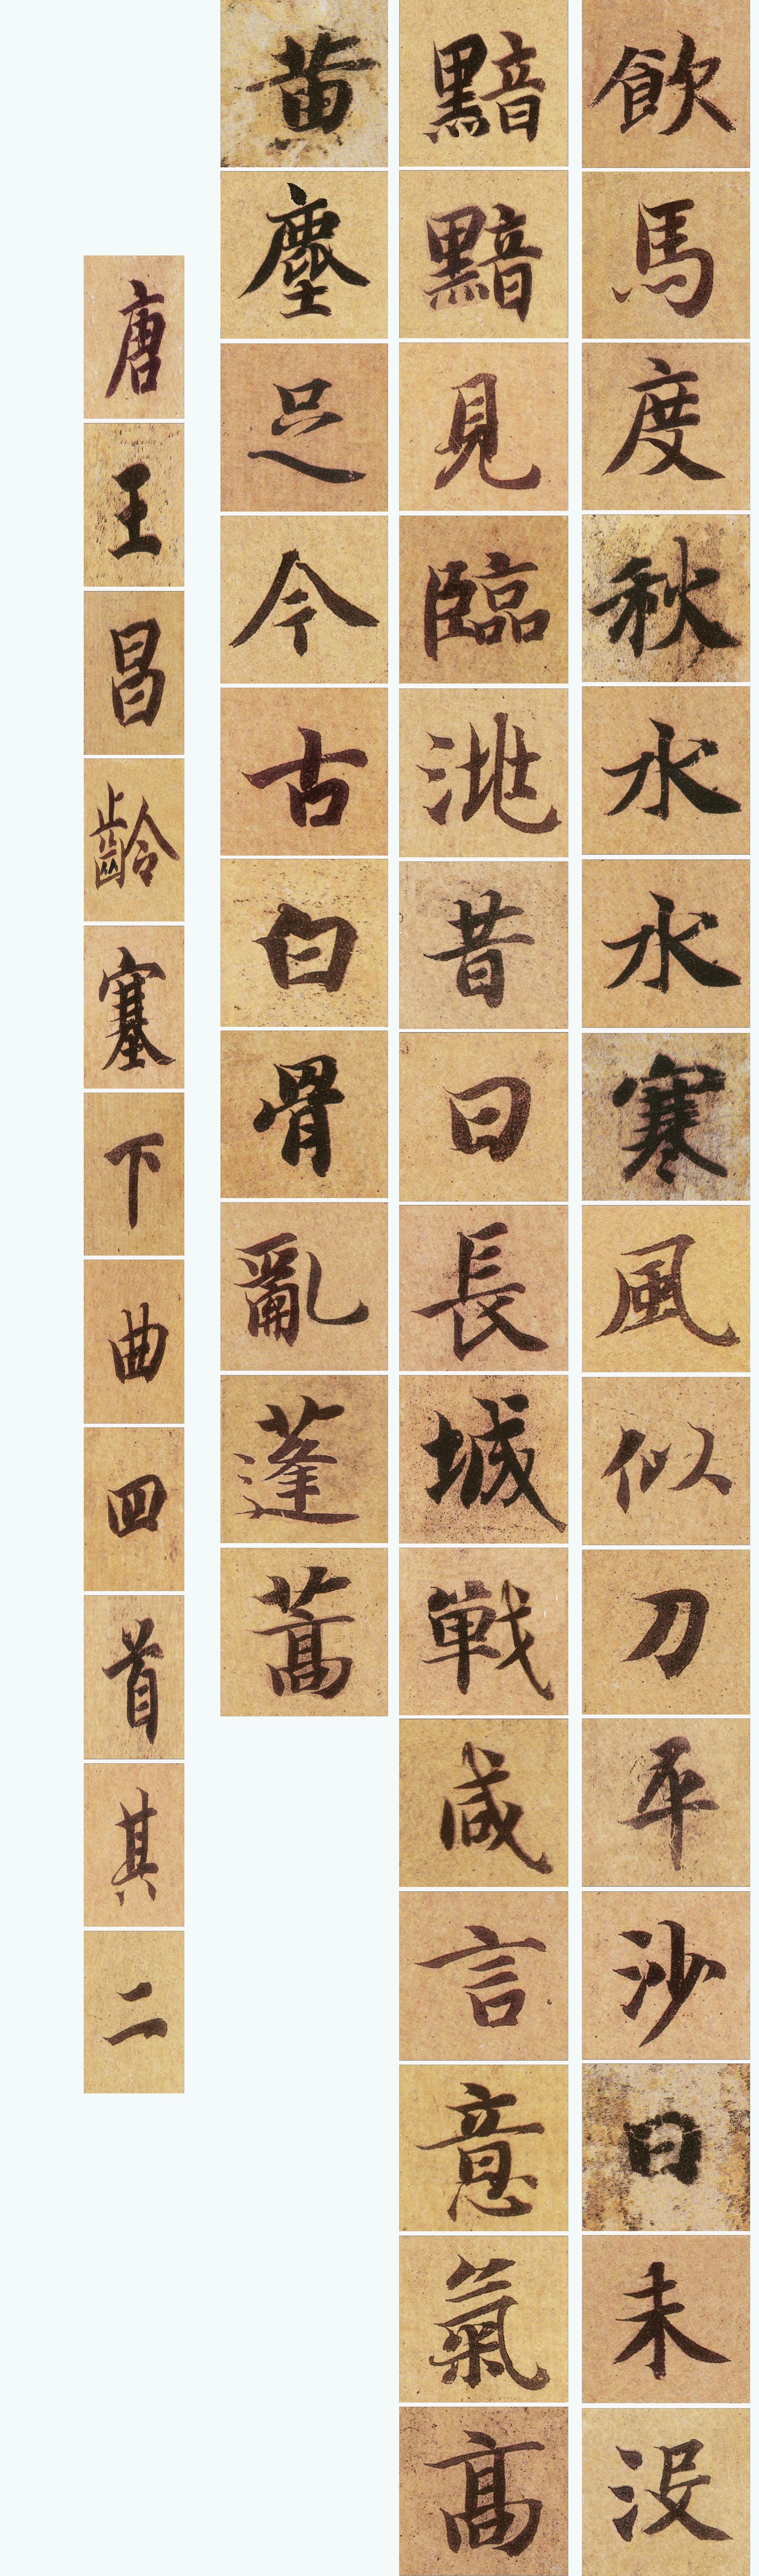 飲馬度秋水水寒風似刀平沙日未没
黯黯見臨洮昔日長城戰咸言意氣高
黄塵足今古白骨亂蓬蒿
唐王昌齡塞下曲四首其二